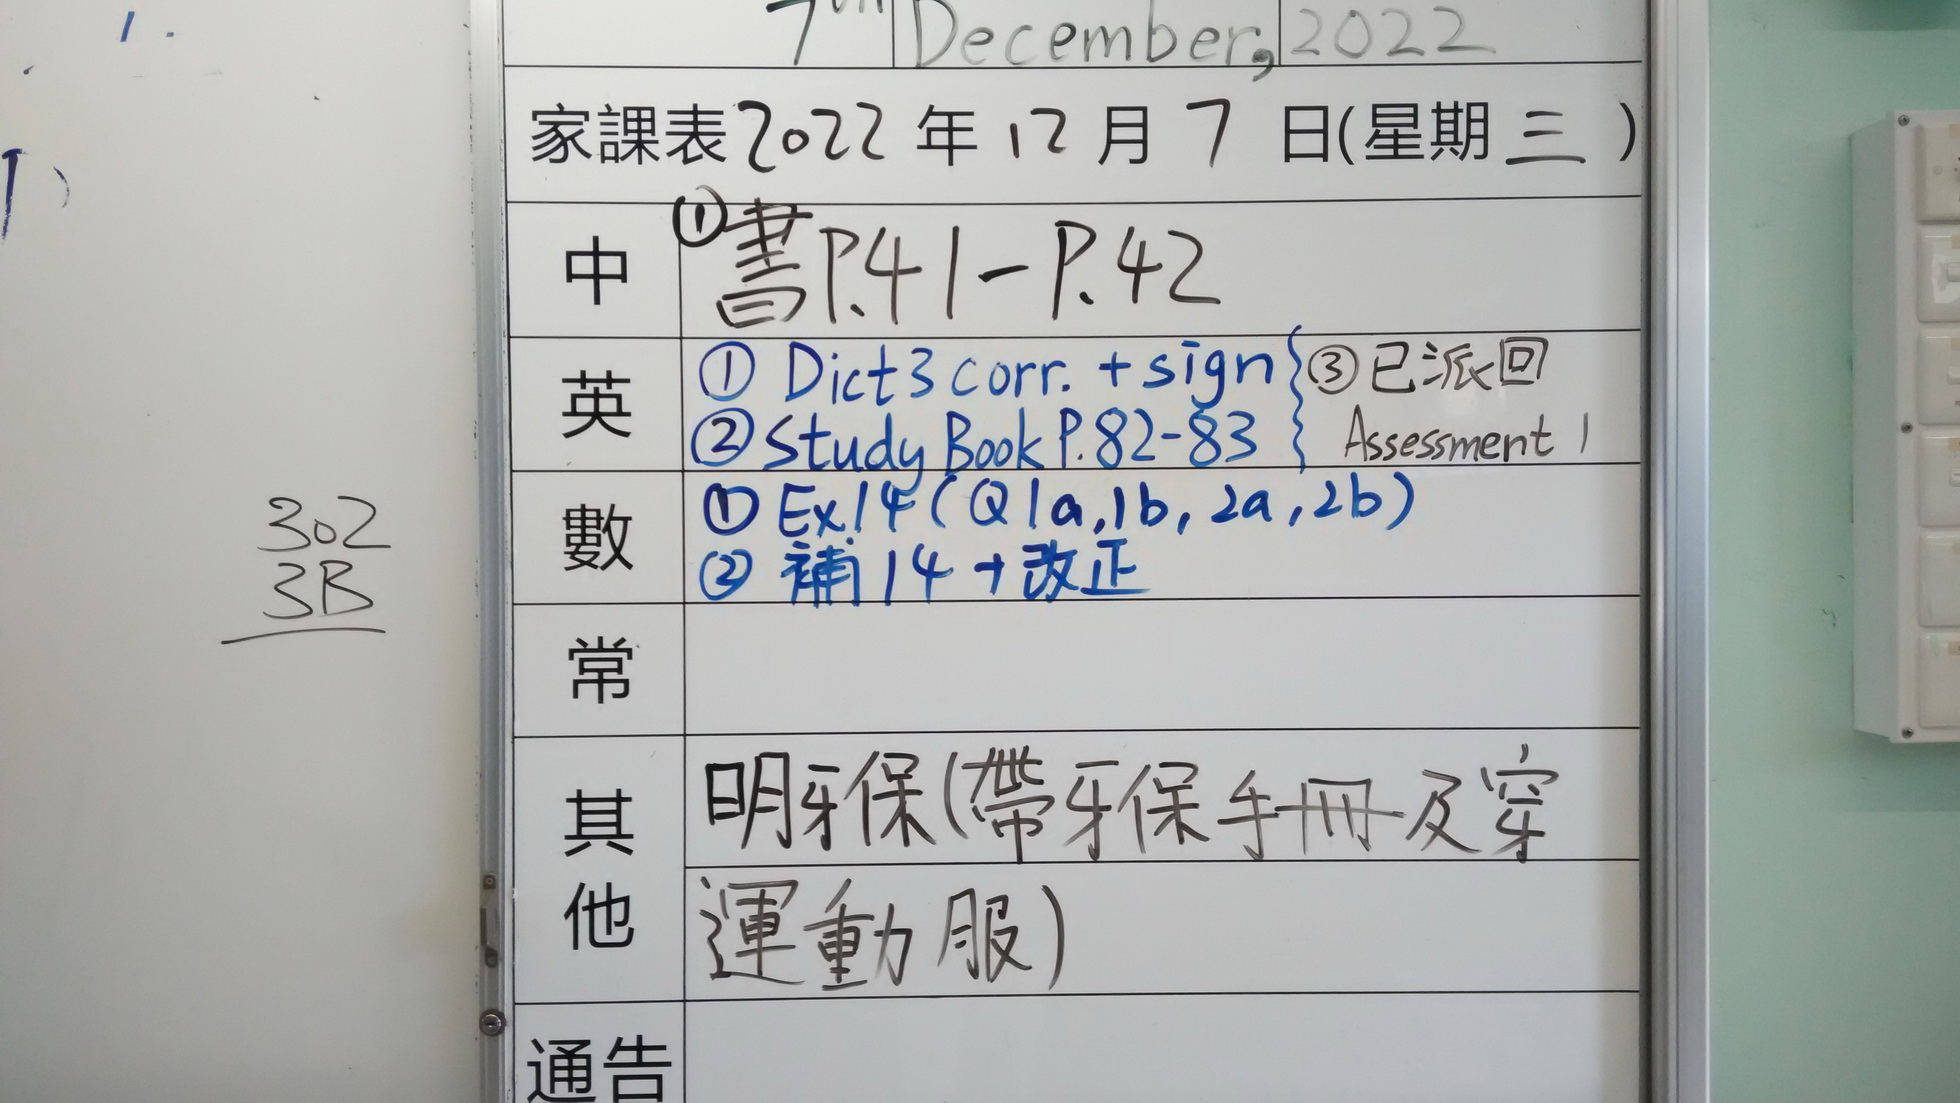 1.
7th December, 2022
家課表 2022 年 12 月 7 日(星期 三 )
中 ①書P.41-P.42
英 ① Dict 3 corr. + sign ③已派回
② Study Book P.82-83 Assessment 1
數 ① Ex14 (Q1a,1b, 2a, 2b)
② 補14+改正
302
3B
常
其他 明牙保(帶牙保手冊及穿
運動服)
通告